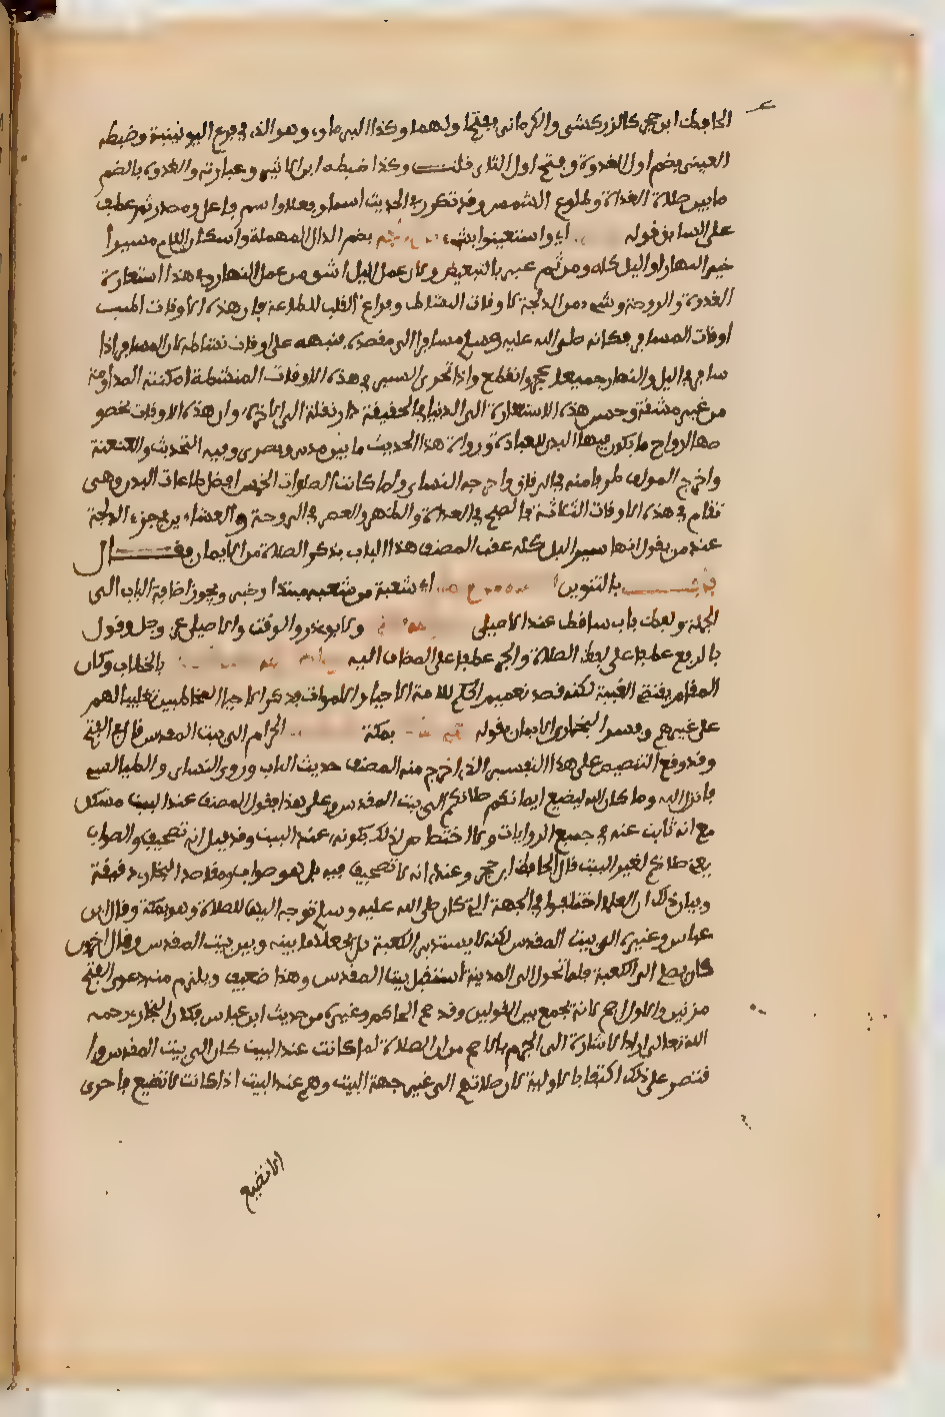 الحافظ ابن حجر كالزركشي والكرماني بفتح اولهما وكذا البرماوي وهو الذي في فرع اليونينية وضبطه
العيني بضم اول الغدوة وفتح اول الثاني قلت وكذا ضبطه ابن الاثير وعبارته والغدوة بالضم
ما بين صلاة الغداة وطلوع الشمس وقد تكرر في الحديث اسما وفعلا واسم فاعل ومصدر ثم عطف
على السابق قوله اي واستعينوا بشيء بضم الدال المهملة واسكان اللام سيرا
خر النهار او الليل كله ومن ثم عبر بالتبعيض ولان عمل الليل اشق من عمل النهار وفي هذا استعارة
الغدوة والروحة وشيء من الدلجة لاوقات النشاط وفراغ القلب للطاعة فان هذه الاوقات اطيب
اوقات المسافر فكانه صلى الله عليه وسلم خاطب مسافرا الى مقصده فنبهه على اوقات نشاطه لان المسافر اذا
سافر في الليل والنهار جميعا عجز وانقطع واذا تحرى السير في هذه الاوقات المنشطة امكنته المداومة
من غير مشقة وحسن هذه الاستعارة ان الدنيا في الحقيقة دار نقلة الى الاخرة وان هذه الاوقات بخصو
صها اروح ما يكون فيها البدن للعبادة ورواة هذا الحديث ما بين مدني وبصري وفيه التحديث والعنعنة
واخرج المولف طرفا منه في الرقاق واخرجه النساي ولما كانت الصلوات الخمس افضل طاعات البدن وهي
تقام في هذه الاوقات الثلاثة فالصبح في الغداة والظهر والعصر في الروحة والعشاءان في جزء الدلجة
عند من يقول انها سير الليل كله عقب المصنف هذا الباب بذكر الصلاة من الايمان فقال
بالتنوين اي شعبة من شعبه مبتدا وخبر ويجوز اضافة الباب الى
الجملة ولفظ باب ساقط عند الاصيلي ولابوي ذر والوقت والاصيلي عز وجل وقول
بالرفع عطفا على لفظ الصلاة والجر عطفا على المضاف اليه بالخطاب وكان
المقام يقتضي الغيبة لكنه قصد تعميم الحكم للامة الاحياء والاموات فذكر الاحياء المخاطبين تغليبا لهم
على غيرهم وفسر البخاري الايمان بقوله بمكة الحرام الى بيت المقدس قال في الفتح
وقد وقع التنصيص على هذا التفسير الذي اخرج منه المصنف حديث الباب وروى النساي والطيالسي
فانزل الله وما كان الله ليضيع ايمانكم صلاتكم الى بيت المقدس وعلى هذا فقول المصنف عند البيت مشكل
مع انه ثابت عنه في جميع الروايات ولا اختصاص لذلك بكونه عند البيت وقد قيل انه تصحيف والصواب
يعني صلاتكم لغير البيت قال الحافظ ابن حجر وعندي انه لا تصحيف فيه بل هو صواب ومقاصد البخاري دقيقة
وبيان ذلك ان العلماء اختلفوا في الجهة التي كان صلى الله عليه وسلم توجه اليها للصلاة وهو بمكة وقال ابن
عباس وغيره الى بيت المقدس لكنه لا يستدبر الكعبة بل يجعلها بينه وبين بيت المقدس وقال اخرون
كان يصلي الى الكعبة فلما تحول الى المدينة استقبل بيت المقدس وهذا ضعيف ويلزم منه دعوى النسخ
مرتين والاول اصح لانه يجمع بين القولين وقد صححه الحاكم وغيره من حديث ابن عباس فكان البخاري رحمه
الله تعالى اراد الاشارة الى الجزم بالاصح من ان الصلاة لما كانت عند البيت كان الى بيت المقدس وا
قتصر على ذلك اكتفاء بالاولوية لان صلاتهم الى غير جهة البيت وهم عند البيت اذا كانت لا تضيع فاحرى
ان لا تضيع